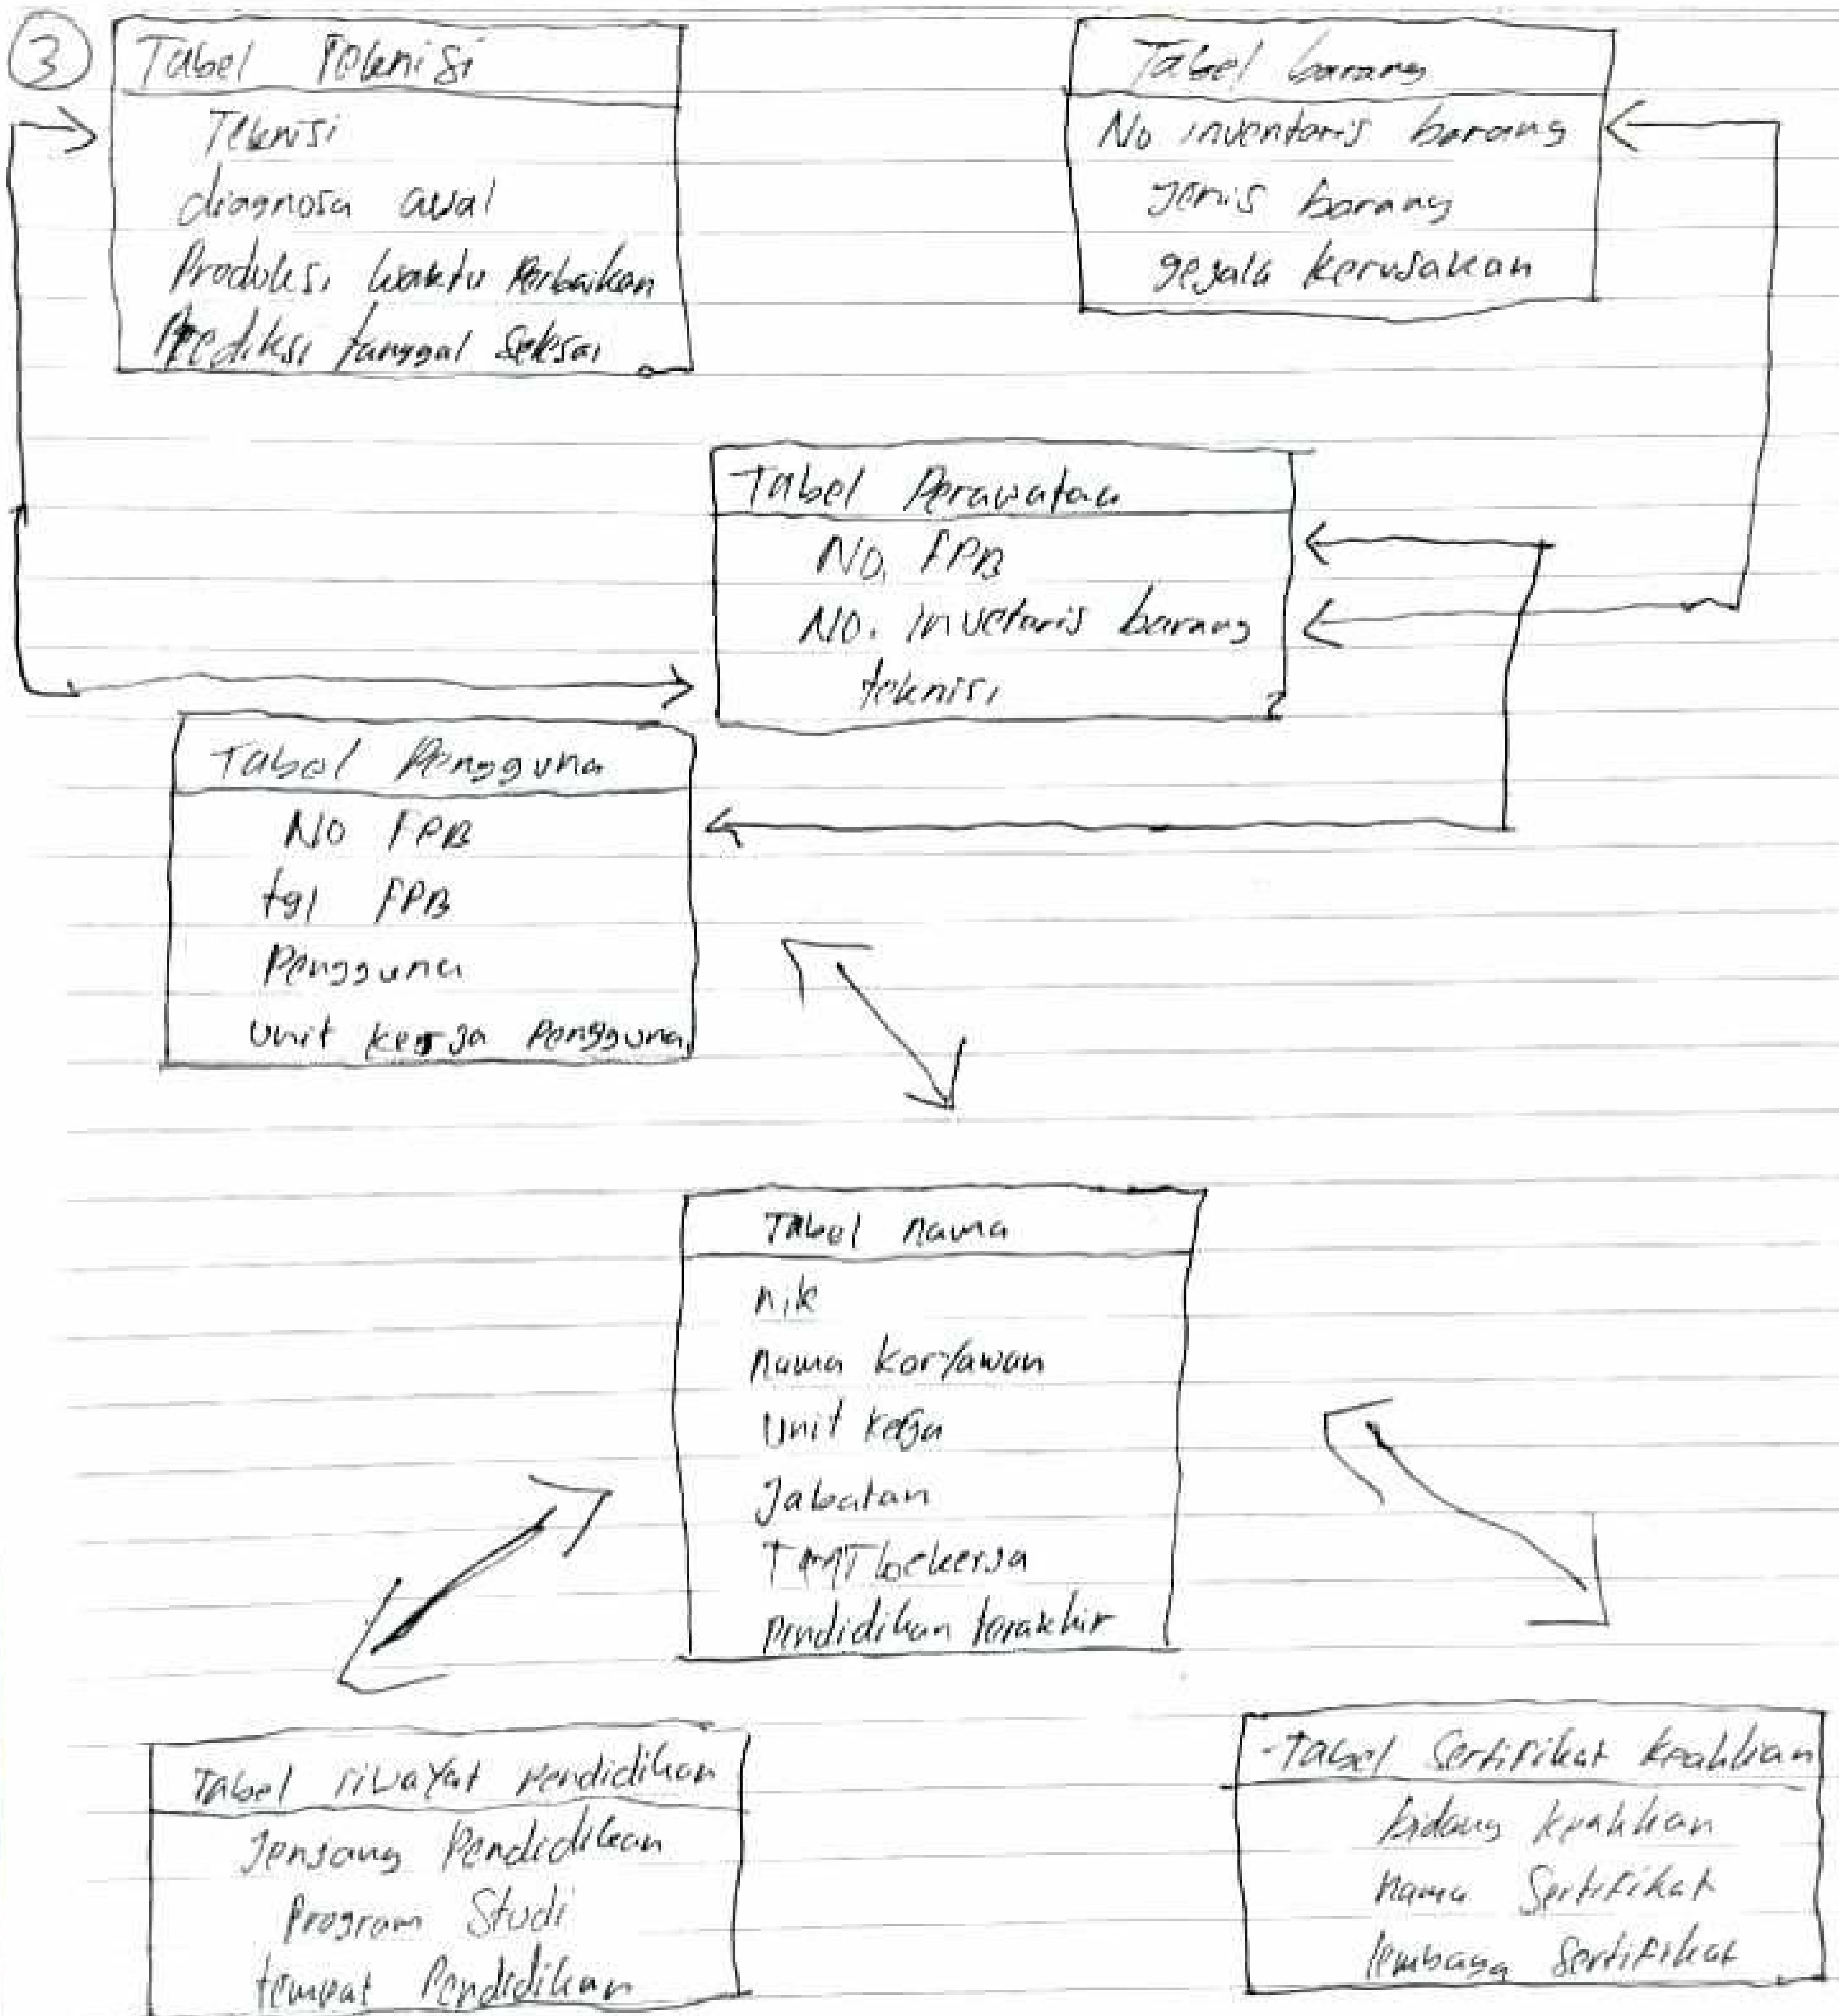 3
Tabel Teknisi
Teknisi
diagnosa awal
Produksi waktu Perbaikan
Prediksi tanggal selesai
Tabel barang
No inventaris barang
jenis barang
gejala kerusakan
Tabel Perawatan
No. FPB
No. invetaris barang
teknisi
Tabel Pengguna
No FPB
tgl FPB
Pengguna
Unit kerja Pengguna
Tabel nama
nik
nama karyawan
Unit kerja
Jabatan
TMT bekerja
Pendidikan terakhir
Tabel riwayat Pendidikan
Jenjang Pendidikan
Program Studi
tempat Pendidikan
Tabel Sertifikat keahlian
bidang keahlian
nama Sertifikat
lembaga Sertifikat